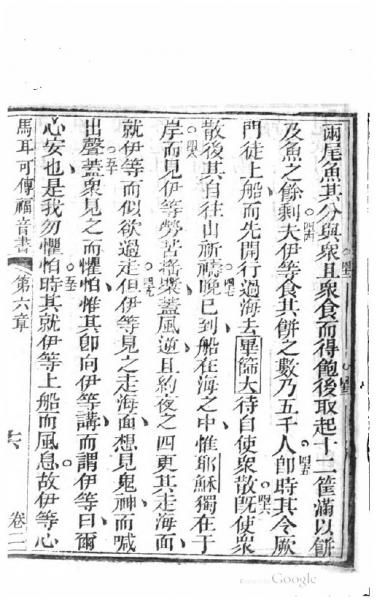 兩尾魚其分與衆且衆食而得飽後取起十二筐滿以餅
及魚之餘剩夫伊等食其餅之數乃五千人卽時其令厥
門徒上船而先開行過海去畢篩大待自使衆散旣使衆
散後其自往山祈禱晚已到船在海之中惟耶穌獨在于
岸而見伊等勞苦摇槳蓋風逆且約夜之四更其走海面
就伊等而似欲過走但伊等見之走海面想見鬼神而喊
出聲蓋衆見之而懼怕惟其卽向伊等講而謂伊等曰爾
心安也是我勿懼怕時其就伊等上船而風息故伊等心
馬耳可傳福音書 第六章 卷二
Google